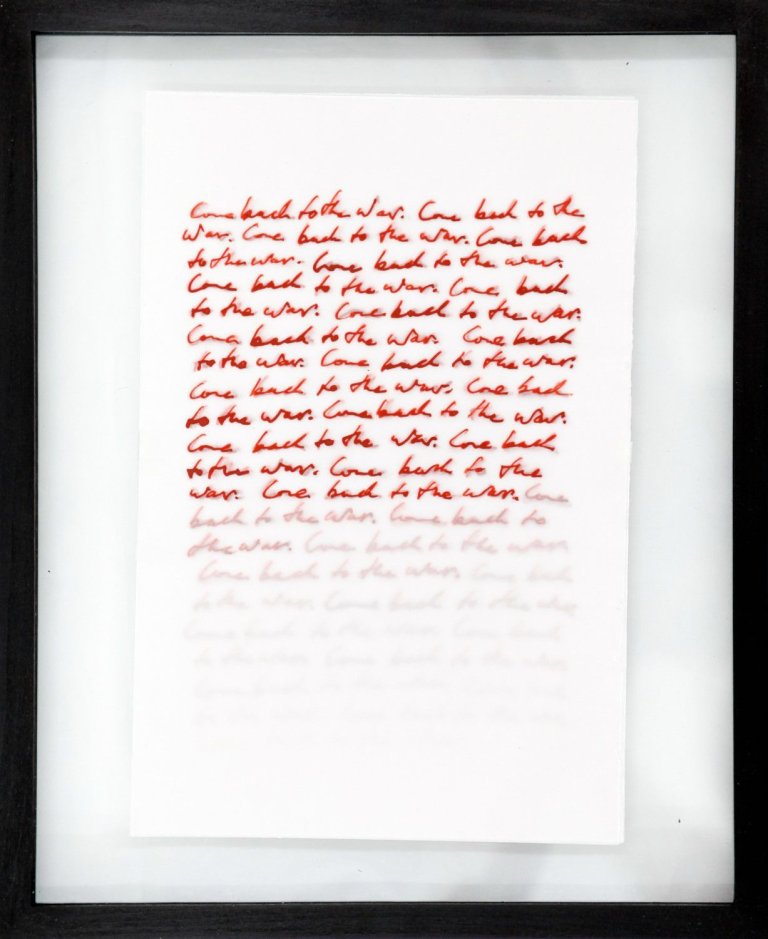 Come back to the war. Come back to the
war. Come back to the war. Come back
to the war. Come back to the war.
Come back to the war. Come back
to the war. Come back to the war.
Come back to the war. Come back
to the war. Come back to the war.
Come back to the war. Come back
to the war. Come back to the war.
Come back to the war. Come back
to the war. Come back to the
war. Come back to the war. Come
back to the war. Come back to
the war. Come back to the war.
Come back to the war. Come back
to the war. Come back to the war.
Come back to the war. Come back
to the war. Come back to the war.
Come back to the war. Come back
to the war. Come back to the war.